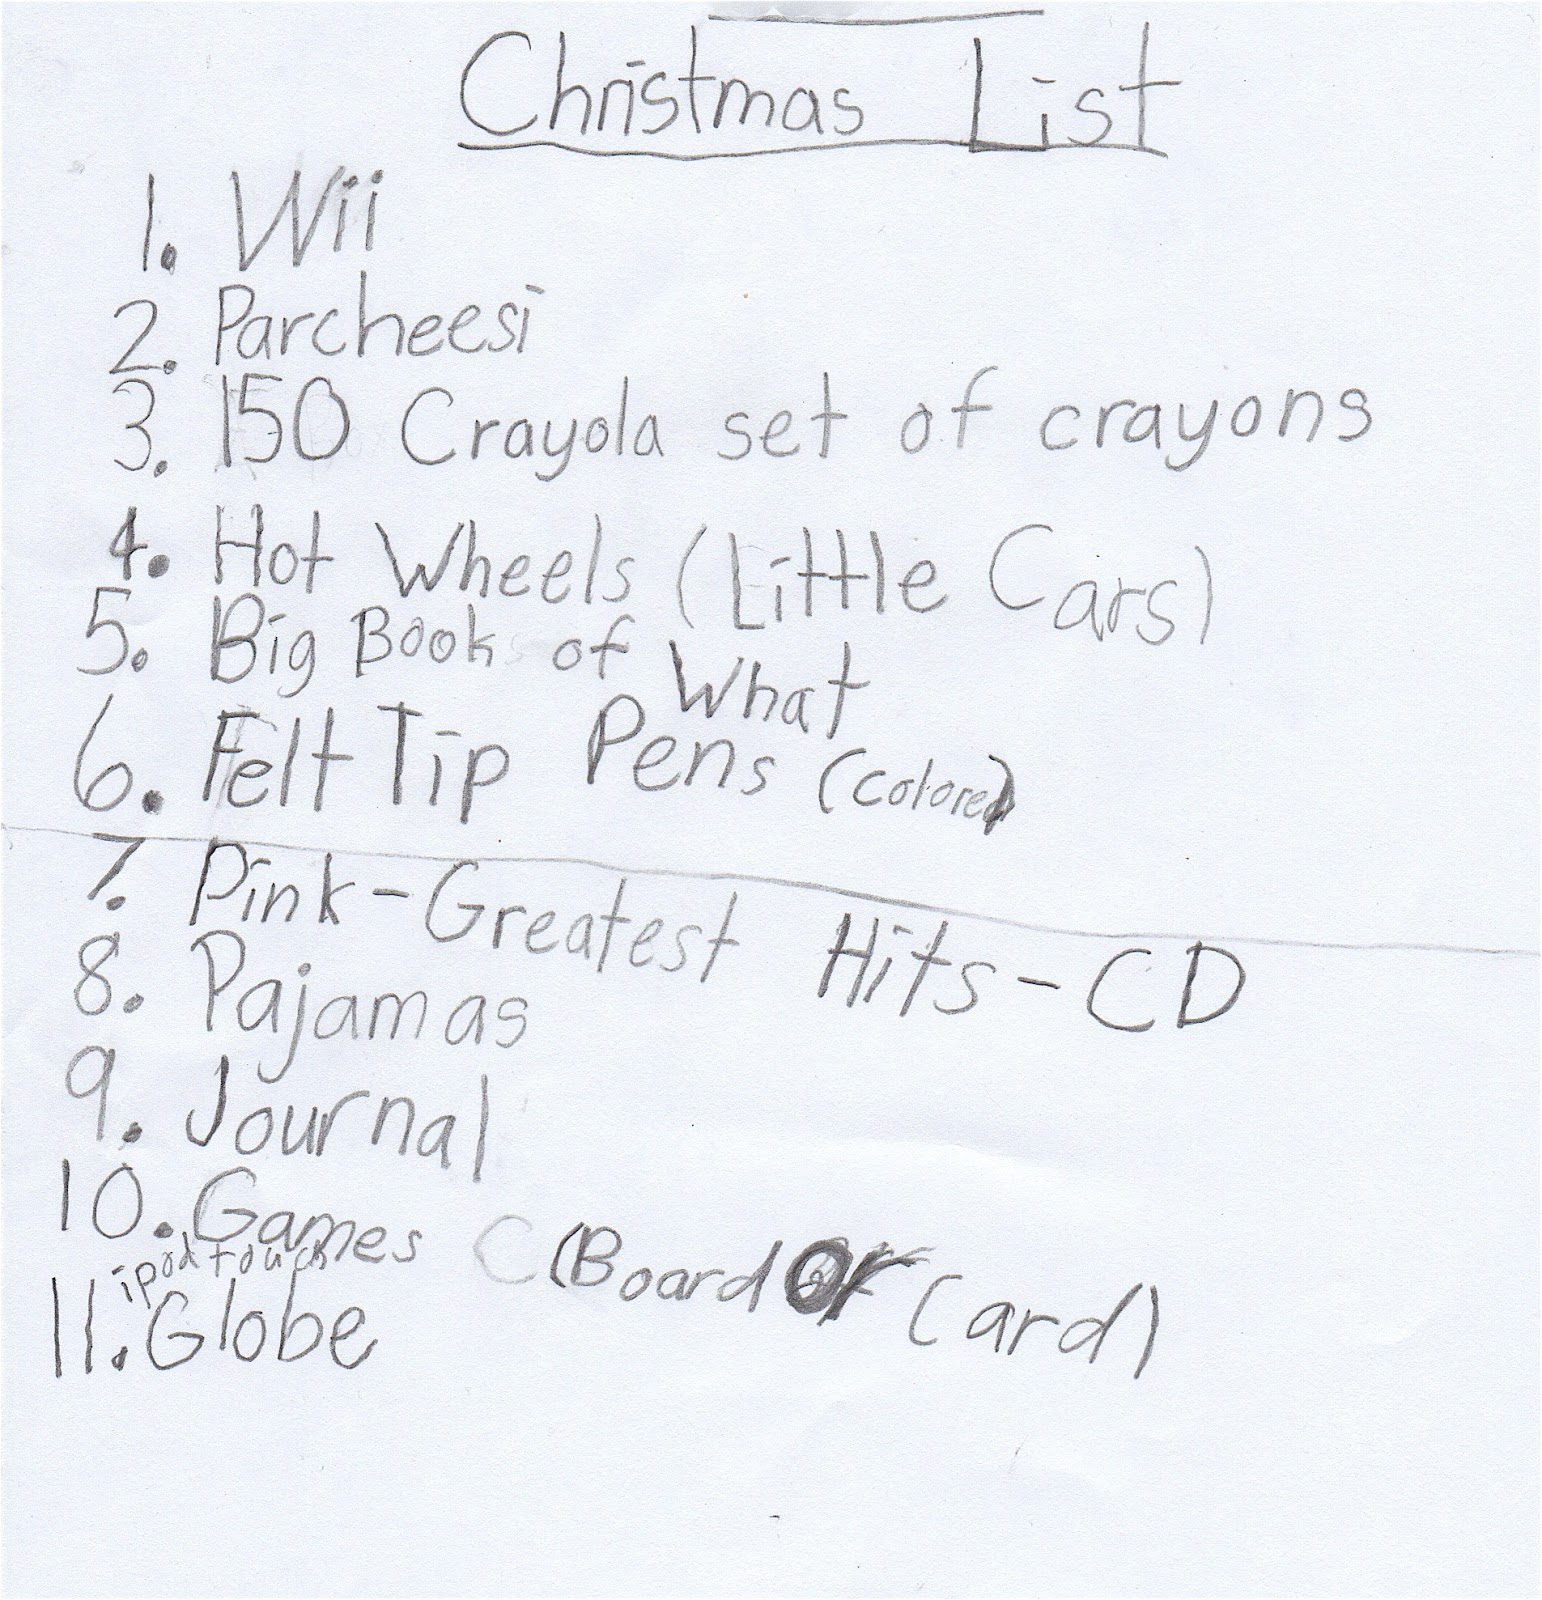 Christmas List
1. Wii
2. Parcheesi
3. 150 Crayola set of crayons
4. Hot Wheels (Little Cars)
5. Big Book of What
6. Felt Tip Pens (colored)
7. Pink-Greatest Hits-CD
8. Pajamas
9. Journal
10. Games (Board or Card)
ipod touch
11. Globe